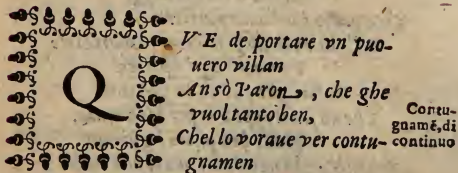 QVE de portare vn puo-
uero villan
An sò Paron, che ghe
vuol tanto ben,
Chel lo voraue ver contu-
gnamen
Contu-
gnamẽ, di
continuo